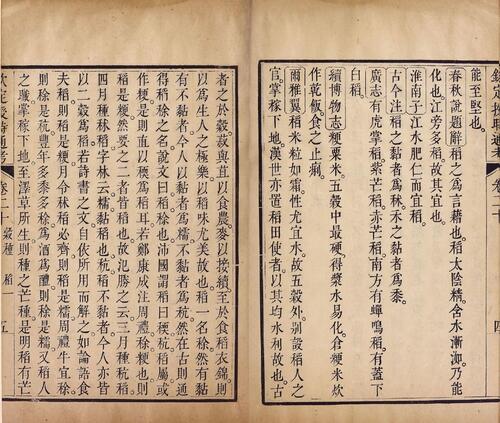 欽定授時通考 卷二十 四
能至堅也
春秋說題辭稻之為言藉也稻太陰精含水漸洳乃能
化也江旁多稻故其宜也
淮南子江水肥仁而宜稻
古今注稻之黏者為秫禾之黏者為黍
廣志有虎掌稻紫芒稻赤芒稻南方有蟬鳴稻有蓋下
白稻
續博物志粳粟米五穀中最硬得漿水易化倉粳米炊
作乾飯食之止痢
爾雅翼稻米粒如霜性尤宜水故五穀外別設稻人之
官掌稼下地漢世亦置稻田使者以其均水利故也古
者之於穀菽與苴以食農麥以接續至於食稻衣錦則
以為生人之極樂以稻味尤美故也稻一名稌然有黏
有不黏者今人以黏者為糯不黏者為秔然在古則通
得稌之名說文曰稻稌也沛國謂稻曰稬秔稻屬也或
作粳是則直以稬為稻耳若鄭康成注周禮稌粳也則
稻是粳然要之二者皆稻也故氾勝之云三月種秔稻
四月種秫稻字林云糯黏稻也秔稻不黏者今人亦皆
以二穀為稻若詩書之文自依所用而解之如論語食
夫稻則稻是粳月令秫稻必齊則稻是糯周禮牛宜稌
則稌是秔豐年多黍多稌為酒為醴則稌是糯又稻人
之職掌稼下地至澤草所生則種之芒種是明稻有芒
欽定授時通考 卷二十 穀種 稻一 五